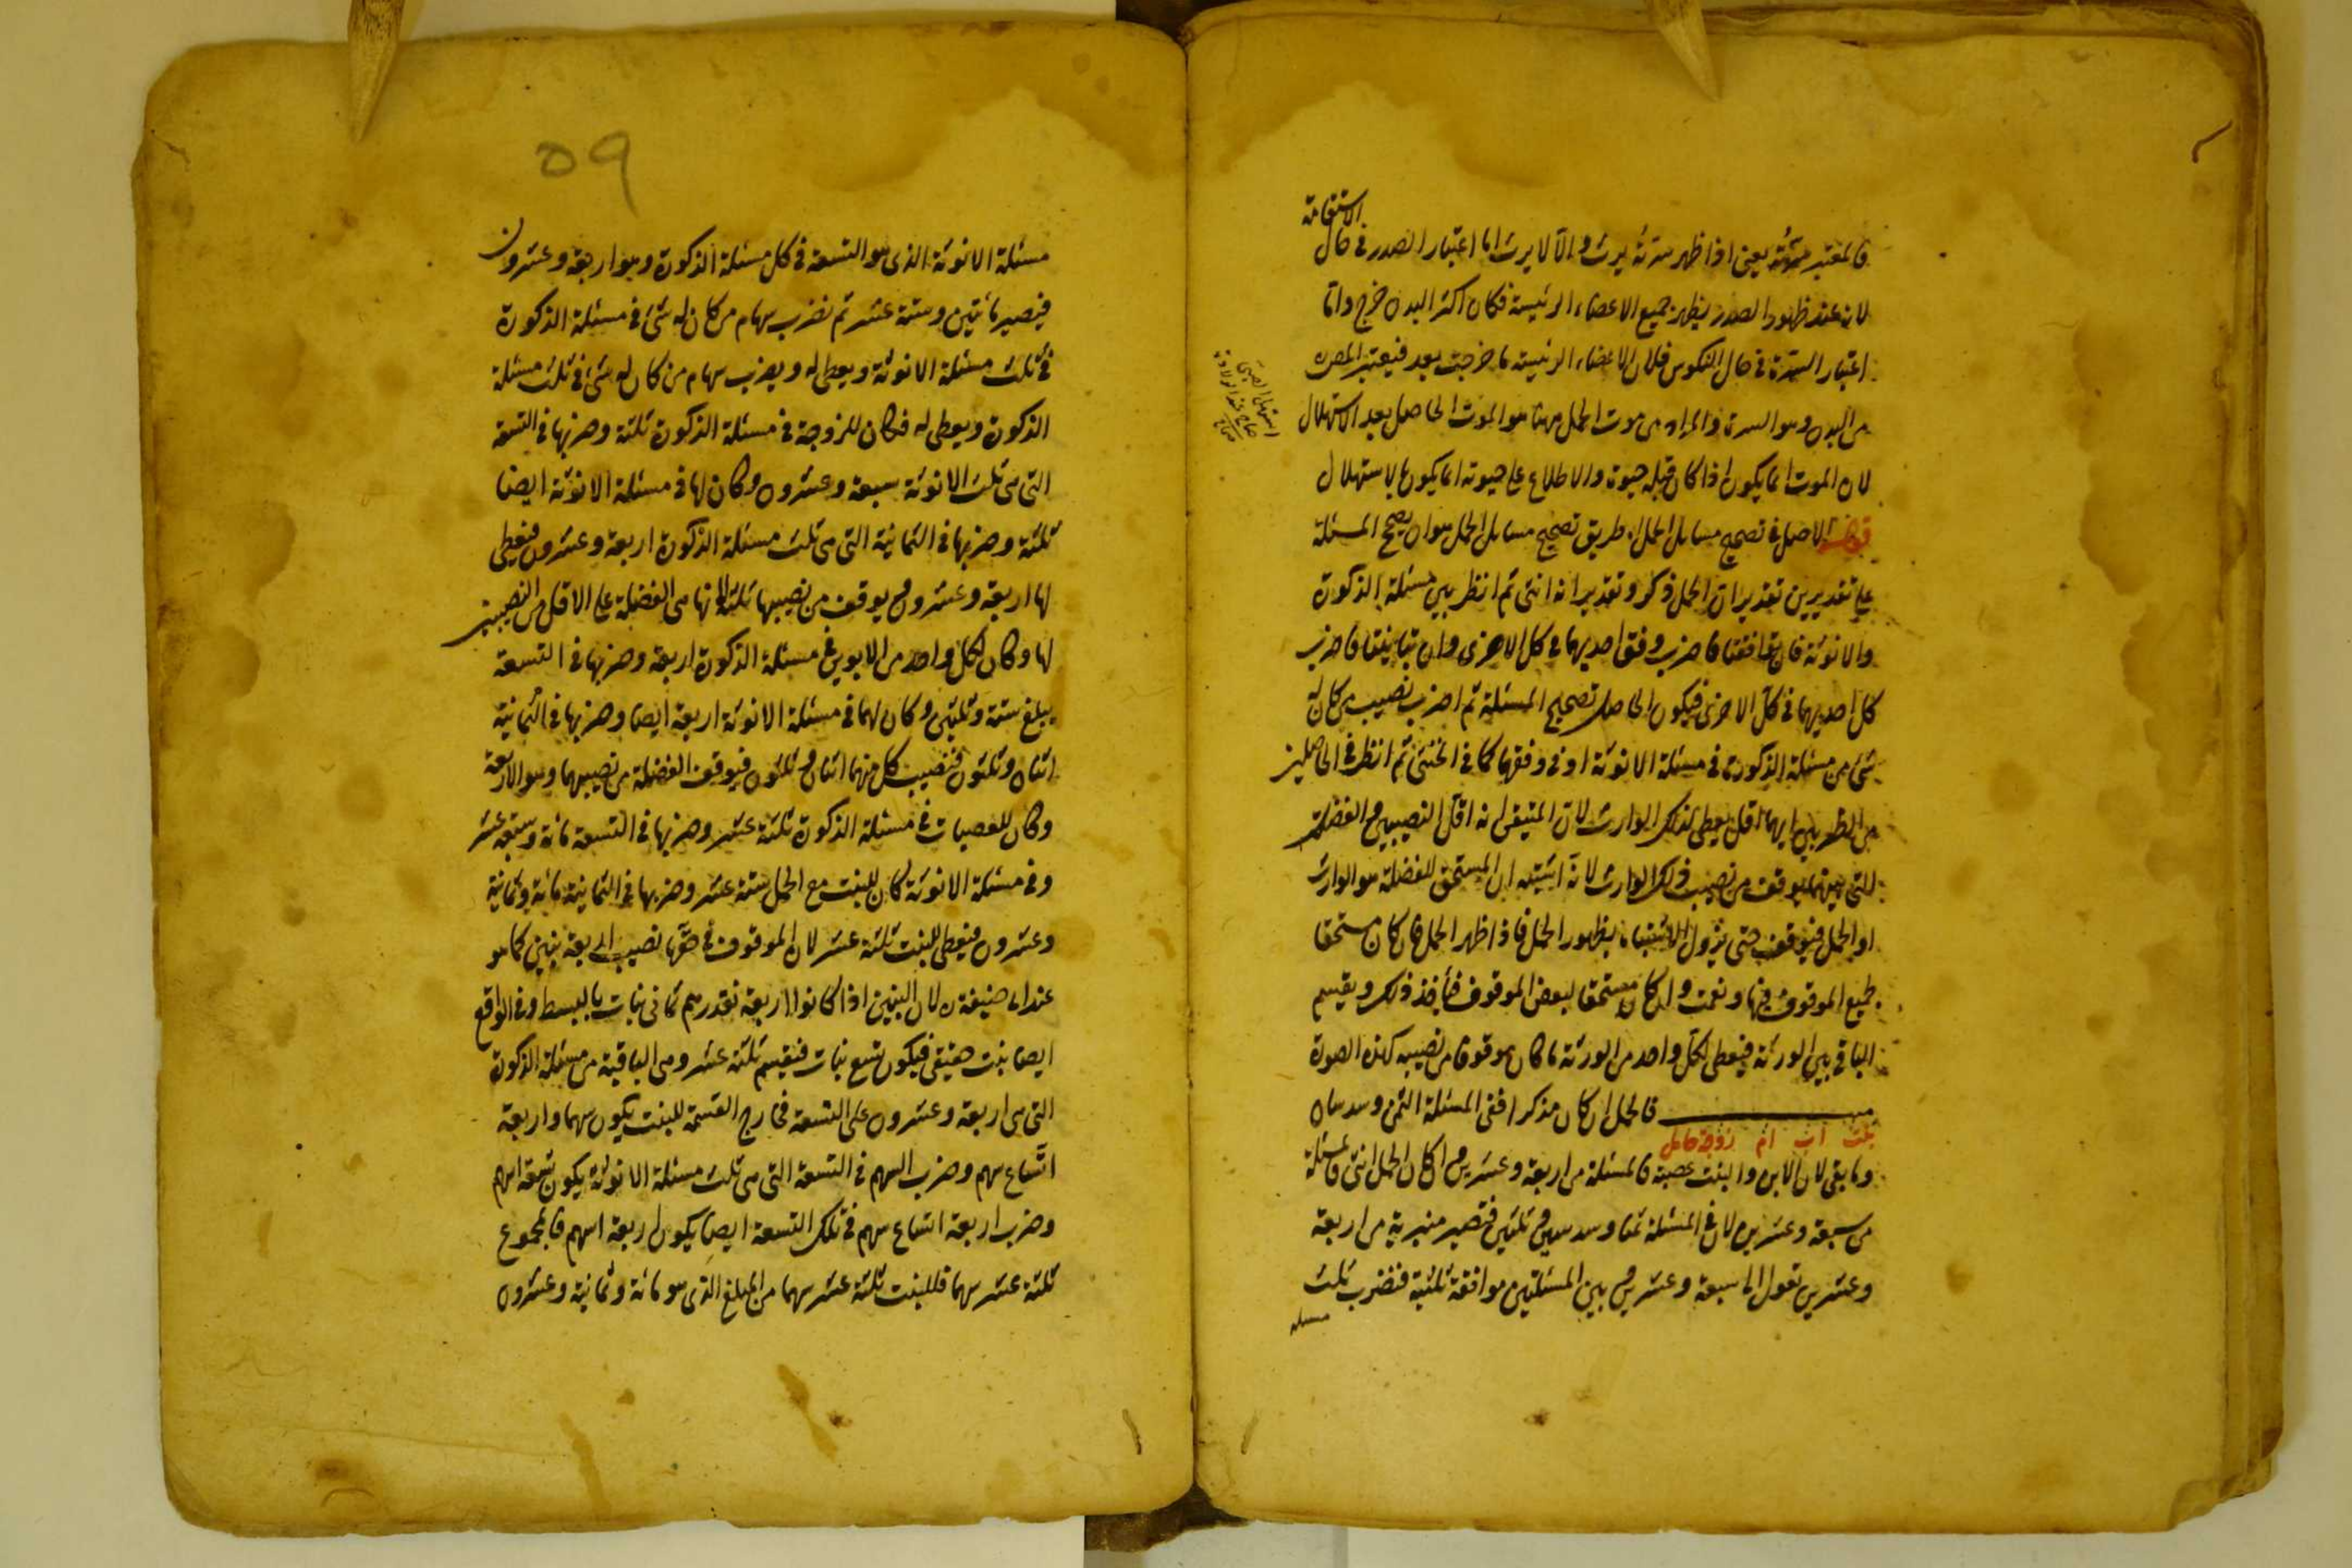 الاستقامة
فالمعتبر سرته يعني اذا ظهر سرته يرث والا لا يرث اما اعتبار الصدر في حال
لان عند ظهور الصدر يظهر جميع الاعضاء الرئيسة فكان اكثر البدن خرج واما
اعتبار السرة في حال النكوس فلان الاعضاء الرئيسة ما خرجت بعد فيعتبر
من البدن وهو السرة والمراد من موت الحمل ههنا هو الموت الحاصل بعد الاستهلال
لان الموت انما يكون اذا كان قبله حيوة والاطلاع على حيوته انما يكون بالاستهلال
استهل الصبي
صاح عند الولادة
صحاح
قوله الاصل في تصحيح مسايل الحمل طريق تصحيح مسايل الحمل هو ان يصحح المسئلة
على تقديرين تقدير ان الحمل ذكر وتقدير انه انثى ثم انظر بين مسئلة الذكورة
والانوثة فان توافقتا فاضرب وفق احديهما في كل الاخرى وان تباينتا فاضرب
كل احديهما في كل الاخرى فيكون الحاصل تصحيح المسئلة ثم اضرب نصيب من كان له
شئ من مسئلة الذكورة في مسئلة الانوثة او في وفقها كما في الخنثى ثم انظر في الحاصلين
من الضرب ايهما اقل يعطى لذلك الوارث لان المتيقن انه اقل النصيبين والفضلة
التي بينهما يوقف من نصيب ذلك الوارث لانه اشتبه ان المستحق للفضلة هو الوارث
او الحمل فيوقف حتى يزول الاشتباه بظهور الحمل فاذا ظهر الحمل فان كان مستحقا
لجميع الموقوف فبها ونعمت وان كان مستحقا لبعض الموقوف فيأخذ ذلك ويقسم
الباقي بين الورثة فيعطى لكل واحد من الورثة ما كان موقوفا من نصيبه كهذه الصورة
فالحمل ان كان مذكرا ففي المسئلة الثمن وسدسان
بنت اب ام زوجة حامل
وما بقي لان الابن والبنت عصبة فالمسئلة من اربعة وعشرين وان كان الحمل انثى فالمسئلة
من سبعة وعشرين لان في المسئلة ثمنا وسدسين وثلثين فتصير منبرية من اربعة
وعشرين تعول الى سبعة وعشرين وبين المسئلتين موافقة ثلثية فنضرب ثلث
مسئلة
٥٩
مسئلة الانوثة الذي هو التسعة في كل مسئلة الذكورة وهو اربعة وعشرون
فيصير مائتين وستة عشر ثم نضرب سهام من كان له شئ في مسئلة الذكورة
في ثلث مسئلة الانوثة ويعطى له ويضرب سهام من كان له شئ في ثلث مسئلة
الذكورة ويعطى له فكان للزوجة في مسئلة الذكورة ثلثة وضربها في التسعة
التي هي ثلث الانوثة سبعة وعشرون وكان لها في مسئلة الانوثة ايضا
ثلثة وضربها في الثمانية التي هي ثلث مسئلة الذكورة اربعة وعشرون فيعطى
لها اربعة وعشرون ويوقف من نصيبها ثلثة لانها هي الفضلة على الاقل من النصيبين
لها وكان لكل واحد من الابوين في مسئلة الذكورة اربعة وضربها في التسعة
يبلغ ستة وثلثين وكان لهما في مسئلة الانوثة اربعة ايضا وضربها في الثمانية
اثنان وثلثون فنصيب كل منهما اثنان وثلثون فيوقف الفضلة من نصيبهما وهو الاربعة
وكان للعصبات في مسئلة الذكورة ثلثة عشر وضربها في التسعة مائة وسبعة عشر
وفي مسئلة الانوثة كان للبنت مع الحمل ستة عشر وضربها في الثمانية مائة وثمانية
وعشرون فيعطى للبنت ثلثة عشر لان الموقوف في حقها نصيب اربعة بنين كما هو
عند ابي حنيفة ره لان البنين اذا كانوا اربعة نقدرهم ثماني بنات بالبسط وفي الواقع
ايضا بنت حقيقي فيكون تسع بنات فيقسم ثلثة عشر وهي الباقية من مسئلة الذكورة
التي هي اربعة وعشرون على التسعة فخارج القسمة للبنت يكون سهما واربعة
اتساع سهم وضرب السهم في التسعة التي هي ثلث مسئلة الانوثة يكون تسعة اسهم
وضرب اربعة اتساع سهم في تلك التسعة ايضا يكون اربعة اسهم فالمجموع
ثلثة عشر سهما فللبنت ثلثة عشر سهما من المبلغ الذي هو مائة وثمانية وعشرون